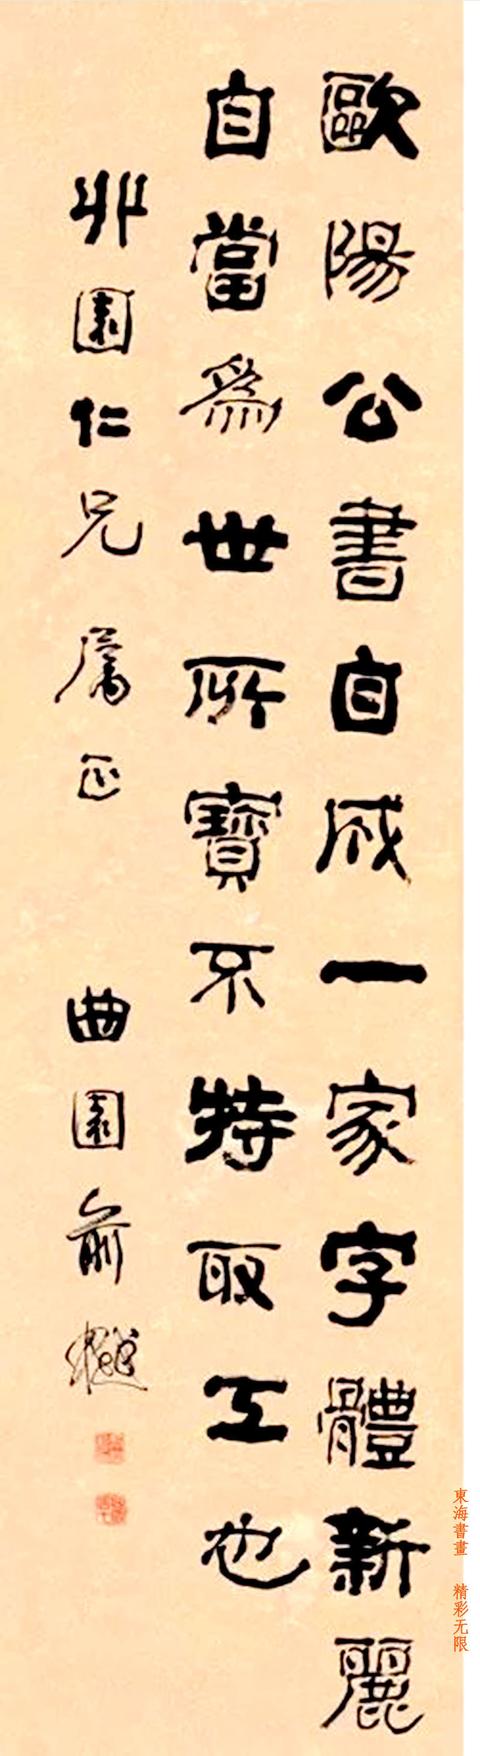 歐陽公書自成一家字體新麗
自當爲世所寶不特取工也
丱園仁兄屬正
曲園俞樾
東海書畫 精彩无限